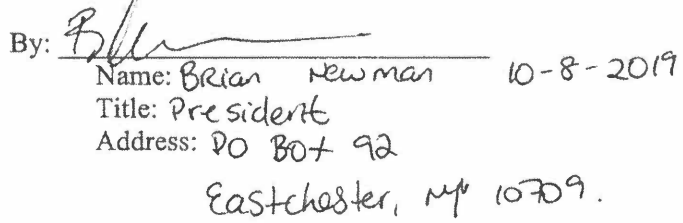 By:
Name: Brian Newman 10-8-2019
Title: President
Address: PO Box 92
Eastchester, NY 10709.